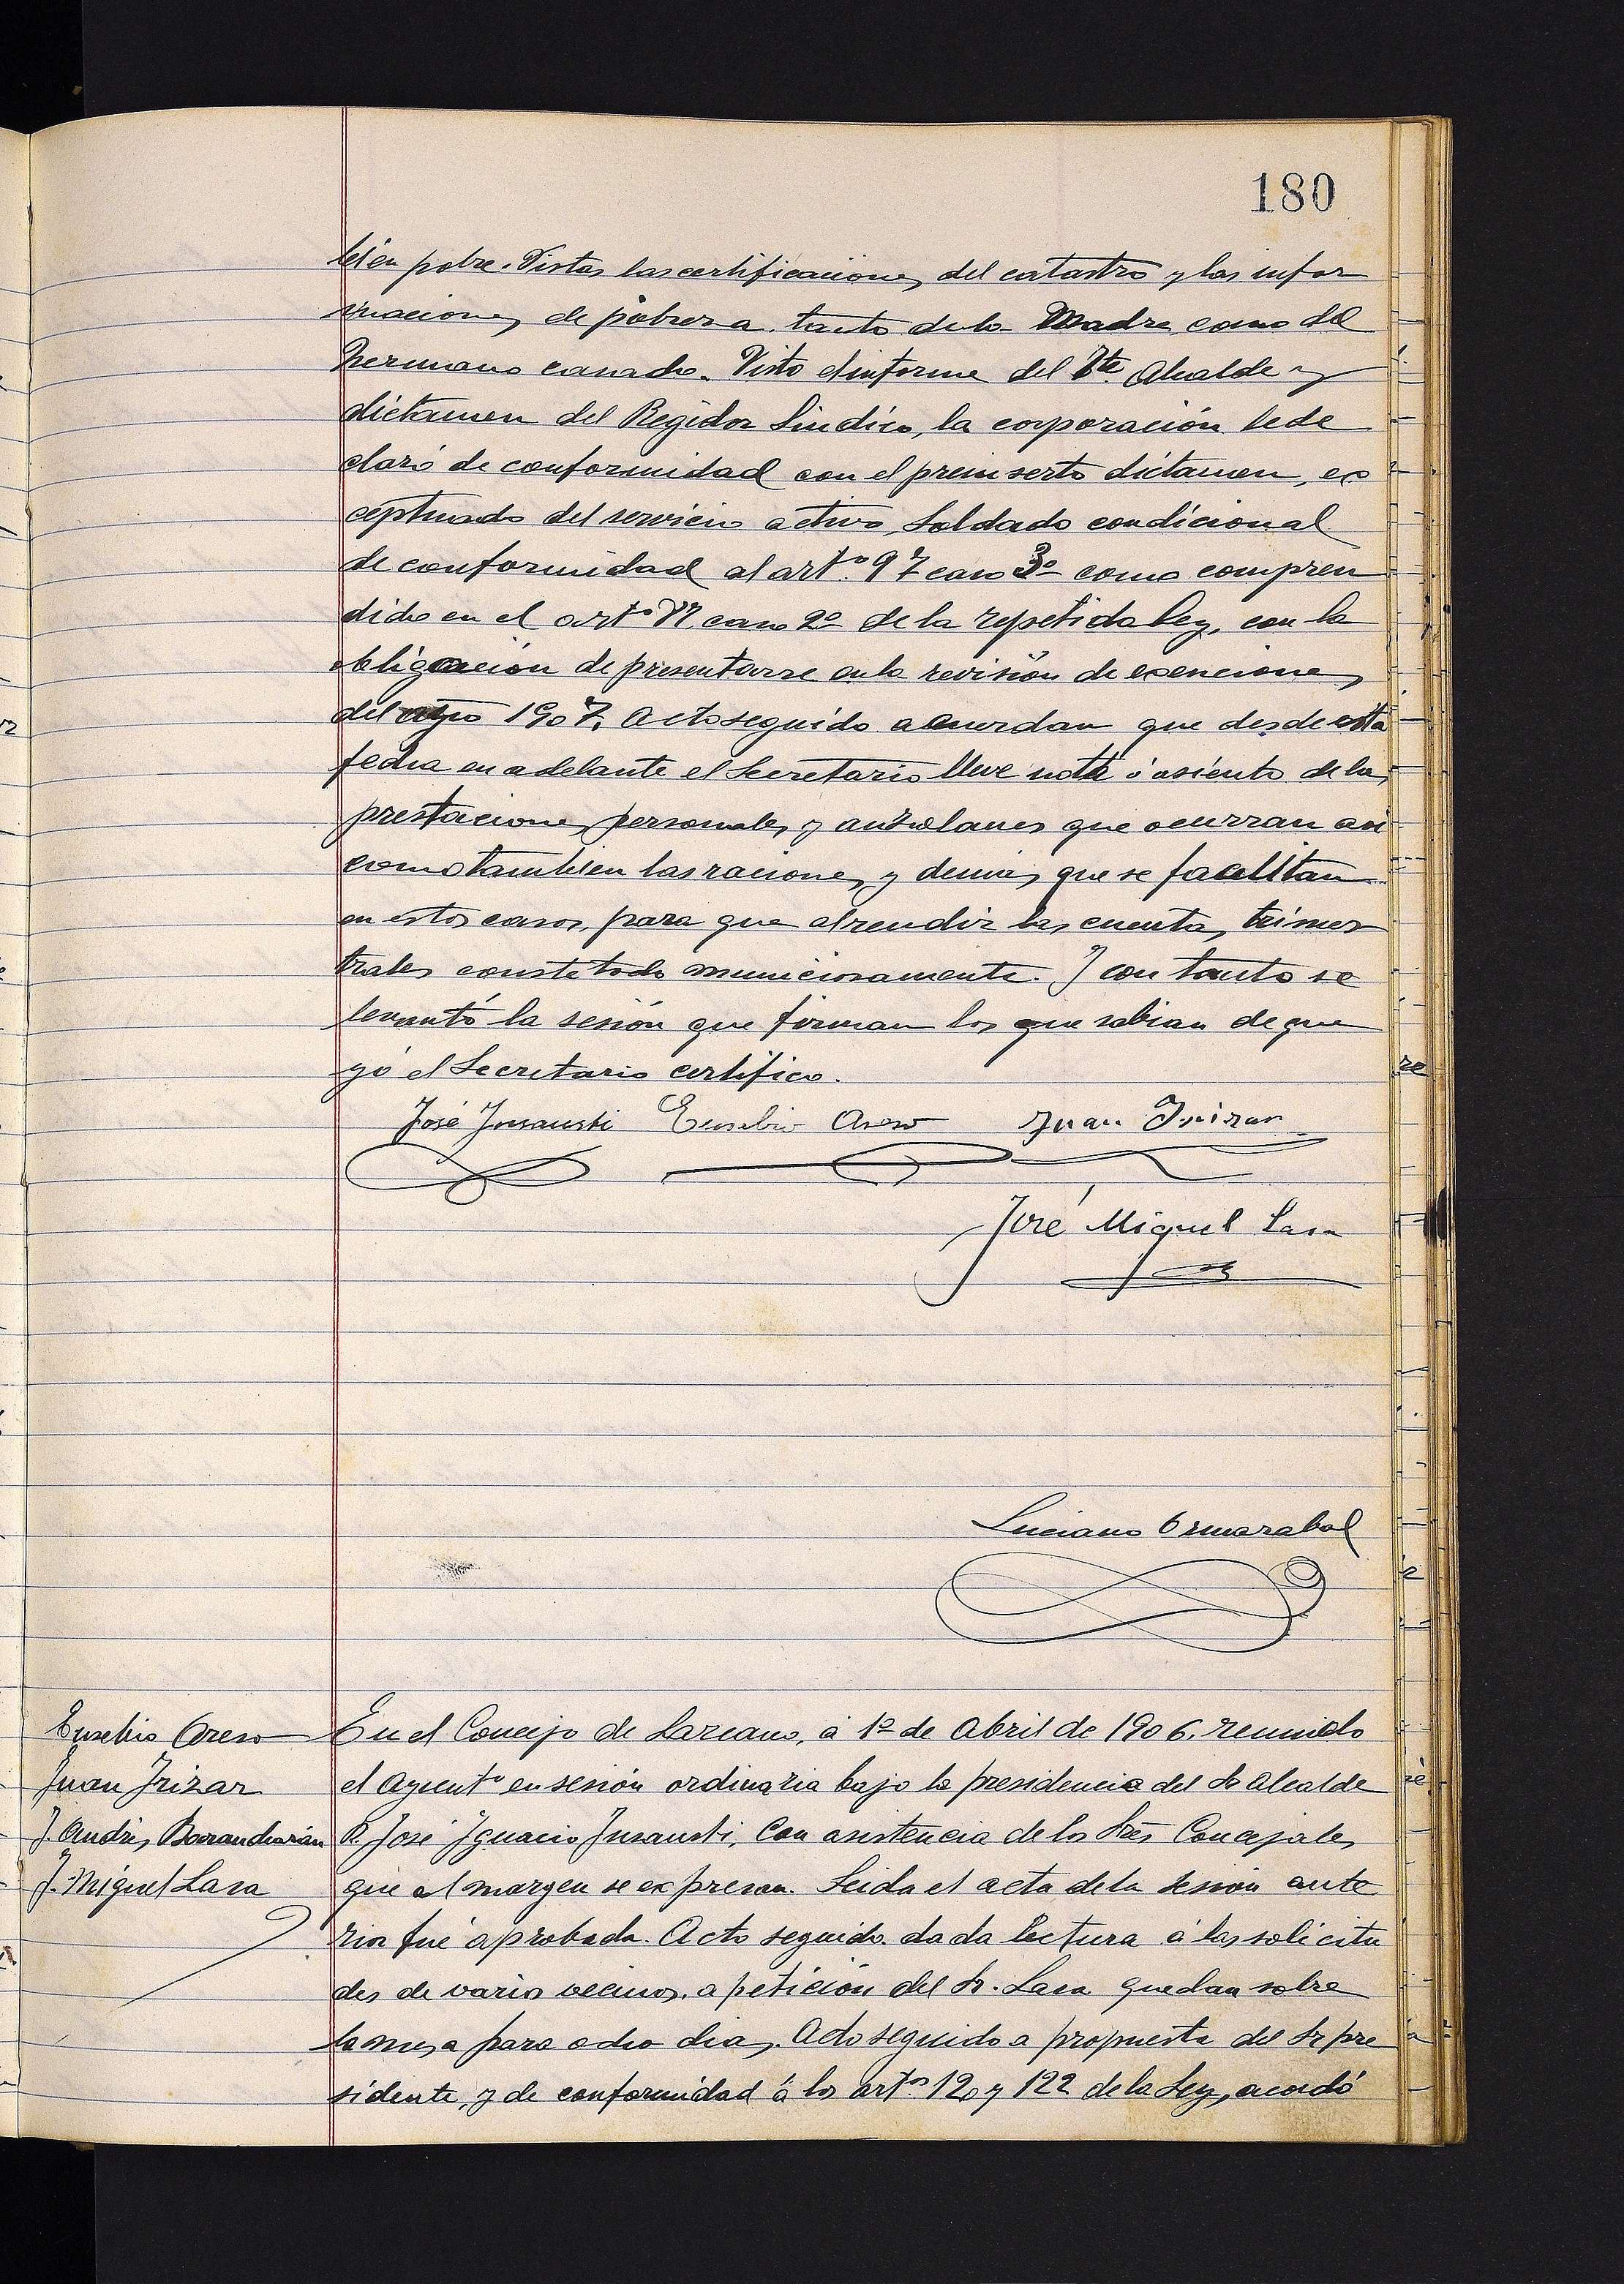 180
bién pobre. Vistas las certificaciones del catastro y las infor
maciones de pobreza tanto de la Madre como del
hermano casado. Visto el informe del Tte Alcalde y
dictamen del Regidor Síndico, la corporación le de
claró de conformidad con el preinserto dictamen, ex
ceptuado del servicio activo, Soldado condicional
de conformidad al artº 97 caso 3º como compren
dido en el artº caso 2º de la repetida ley, con la
obligación de presentarse en la revisión de exenciones
del año 1907. Acto seguido acuerdan que desde esta
fecha en adelante el Secretario lleve nota ó asiento de las
prestaciones personales y auzolanes que ocurran asi
como tambien las raciones y demás que se facilitan
en estos casos, para que al rendir las cuentas trimes
trales conste todo municiosamente. Y con tanto se
levantó la sesión que firman los que sabian de que
yó el Secretario certifico.
José Insausti Eusebio Areso Juan Irizar
José Miguel Lasa
Luciano Ormazabal
Eusebio Areso
Juan Irizar
J. Andrés Barandiarán
J. Miguel Lasa
En el Concejo de Lazcano, á 1º de Abril de 1906, reunido
el Ayuntº en sesión ordinaria bajo la presidencia del Sr Alcalde
D. José Ignacio Insausti, Con asistencia de los Sres Concejales
que al margen se expresan. Leida el acta de la sesión ante
rior fué aprobada. Acto seguido dada lectura á las solicitu
des de varios vecinos, a petición del Sr. Lasa quedan sobre
la mesa para otro dia. Acto seguido a propuesta del Sr pre
sidente, y de conformidad á los artos 120 y 122 de la Ley, acordó